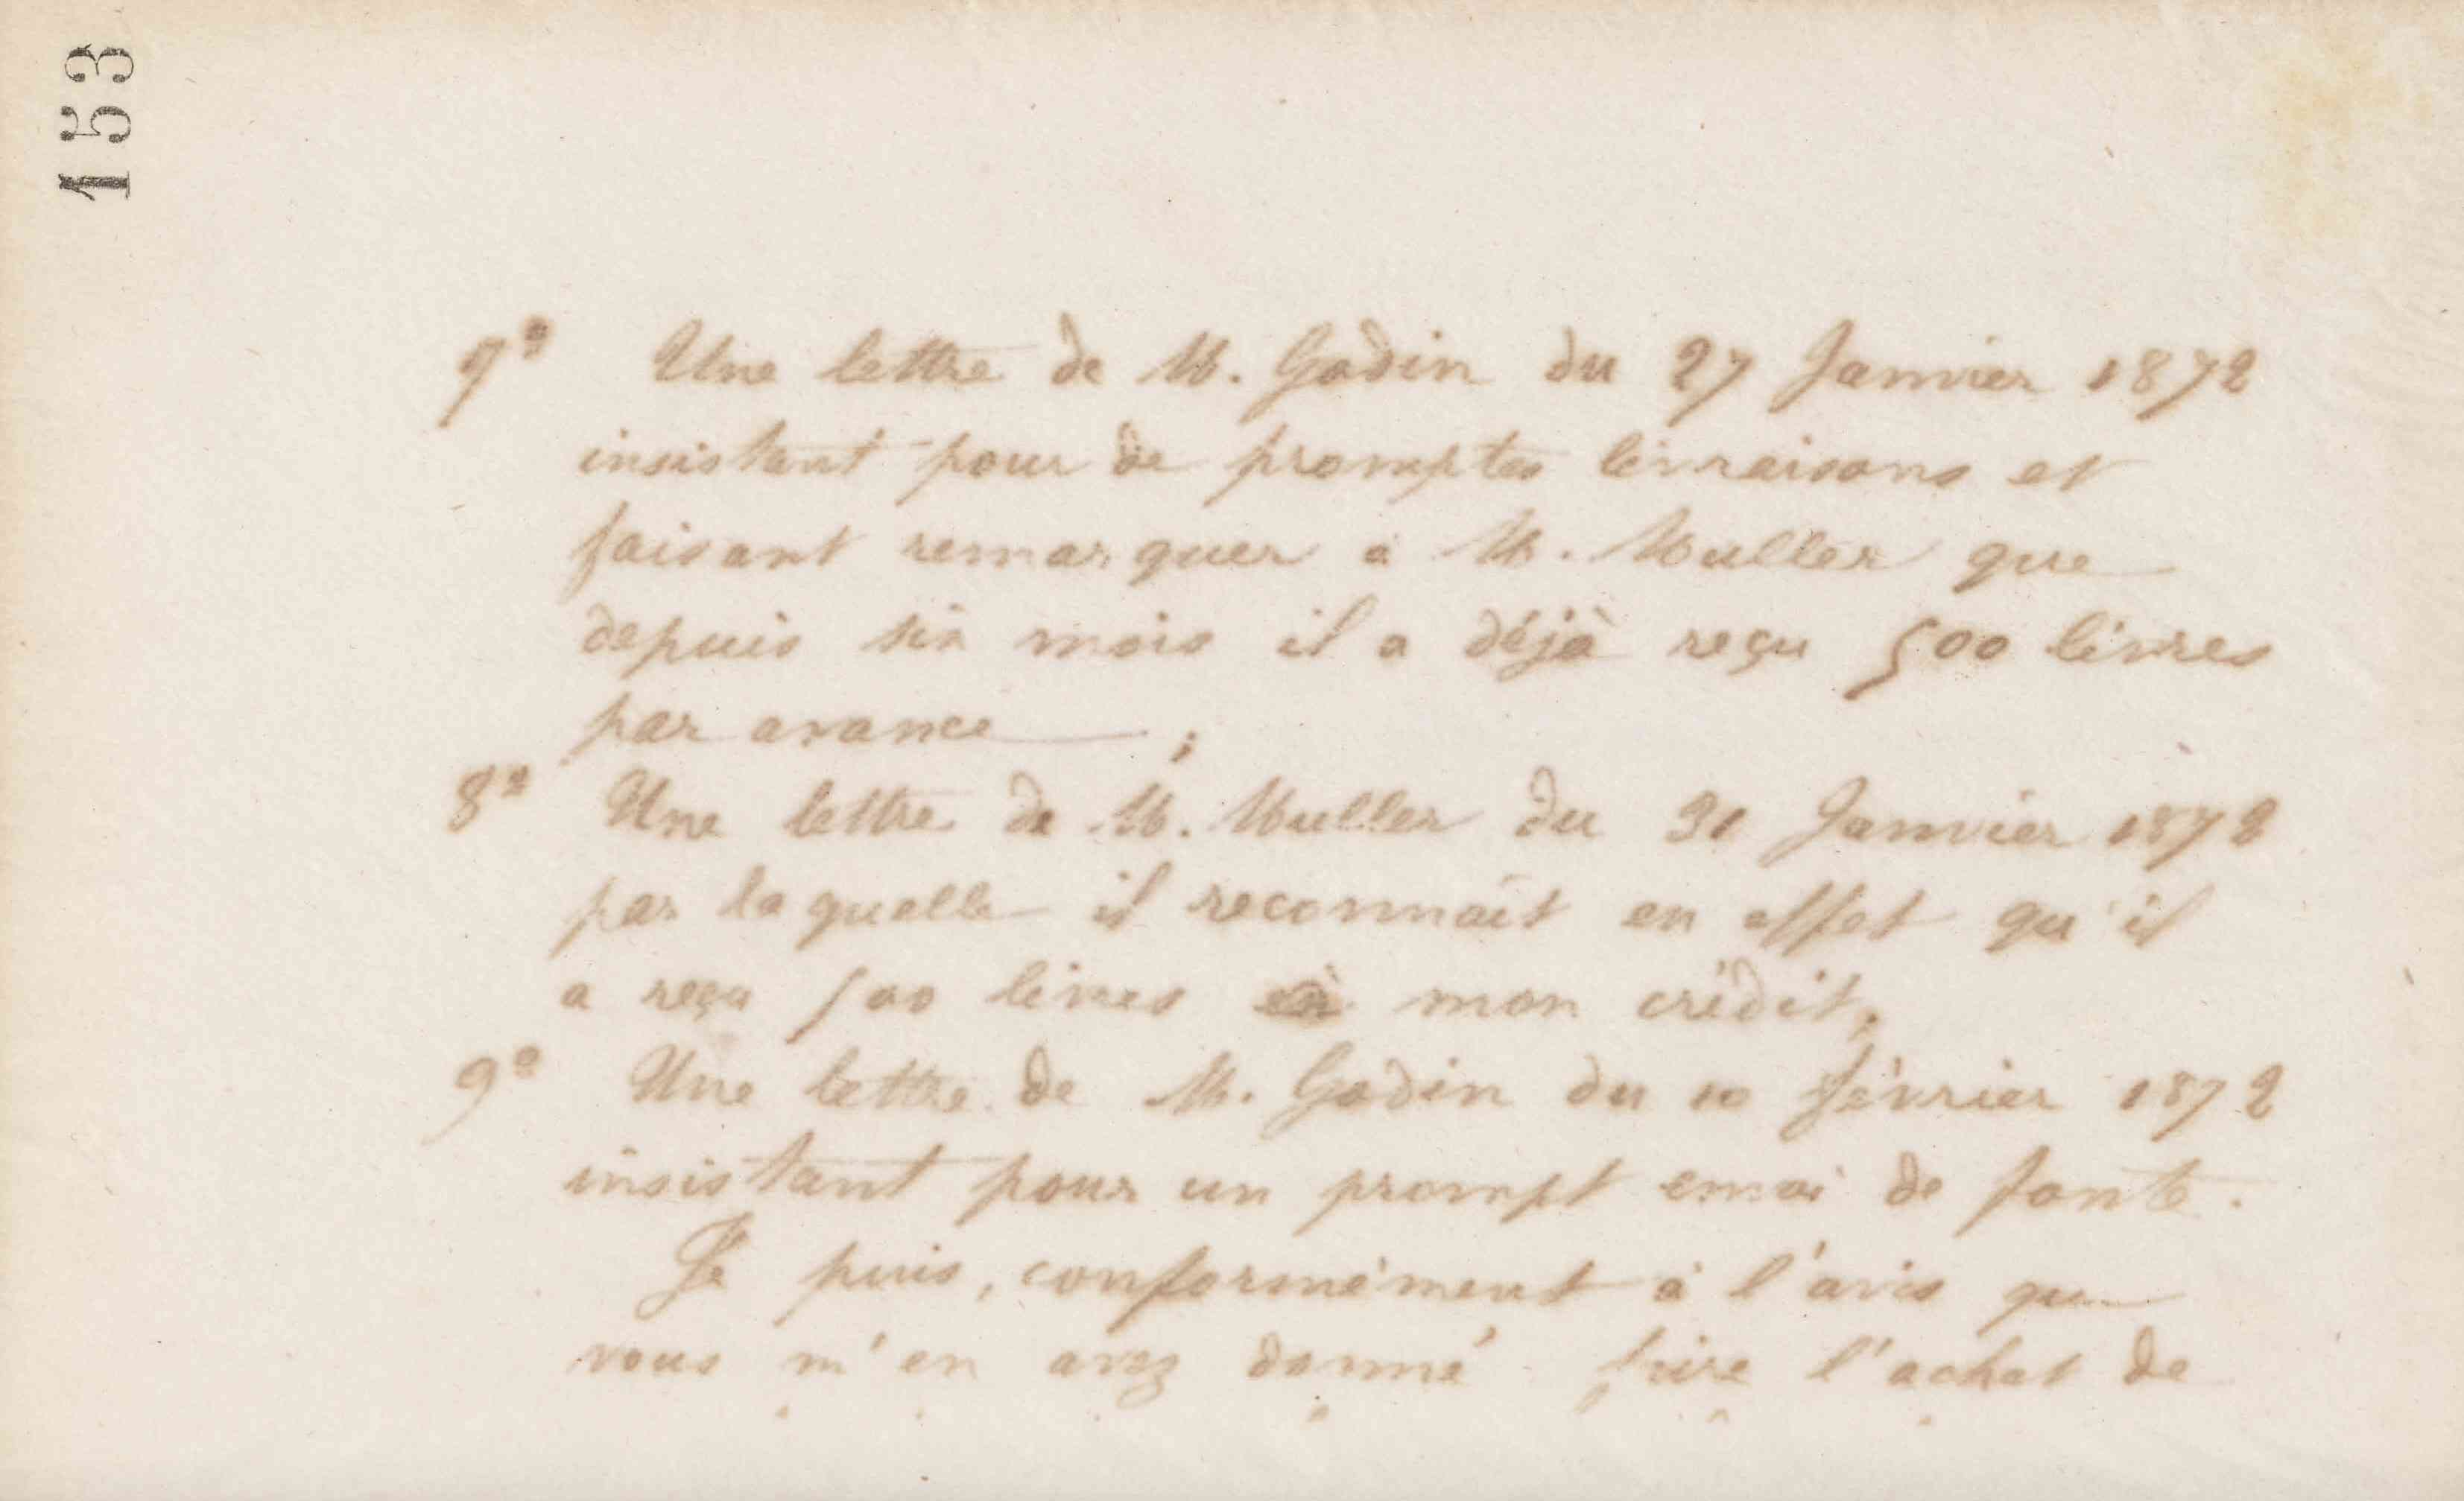 153
7° Une lettre de M. Godin du 27 Janvier 1872
insistant pour de promptes livraisons et
faisant remarquer à M. Muller que
depuis six mois il a déjà reçu 500 livres
par avance ;
8° Une lettre de M. Muller du 31 Janvier 1872
par laquelle il reconnaît en effet qu'il
a reçu 500 livres à mon crédit;
9° Une lettre de M. Godin du 10 février 1872
insistant pour un prompt envoi de fonte.
Je puis, conformément à l'avis que
vous m'en avez donné faire l'achat de